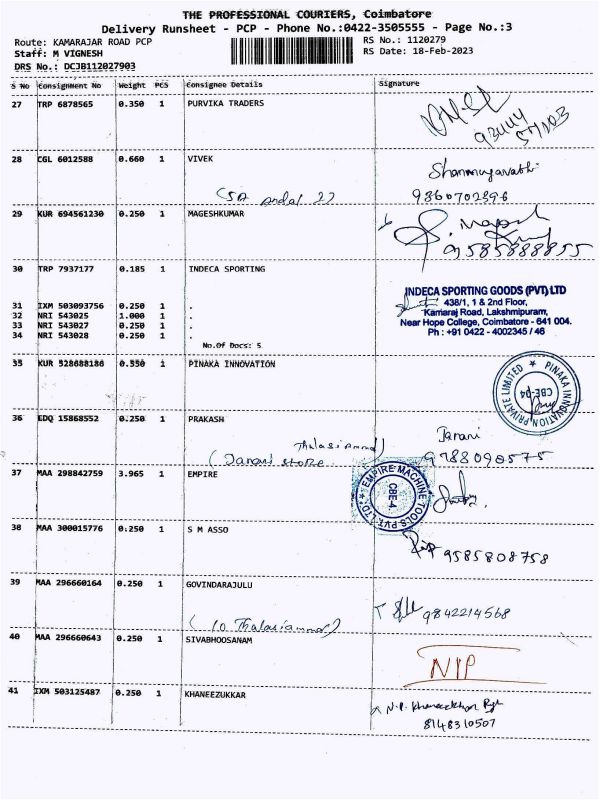 THE PROFESSIONAL COURIERS, Coimbatore
Delivery Runsheet - PCP - Phone No.:0422-3505555 - Page No.:3
Route: KAMARAJAR ROAD PCP
RS No.: 1120279
Staff: M VIGNESH
RS Date: 18-Feb-2023
DRS No.: DCJB112027903
S No Consignment No Weight PCS Consignee Details Signature
27 TRP 6878565 0.350 1 PURVIKA TRADERS
28 CGL 6012588 0.660 1 VIVEK
9360702396
29 KUR 694561230 0.250 1 MAGESHKUMAR
9585888855
30 TRP 7937177 0.185 1 INDECA SPORTING
INDECA SPORTING GOODS (PVT) LTD
438/1, 1 & 2nd Floor,
Kamaraj Road, Lakshmipuram,
Near Hope College, Coimbatore - 641 004.
Ph : +91 0422 - 4002345 / 46
31 IXM 503093756 0.250 1 .
32 NRI 543025 1.000 1 .
33 NRI 543027 0.250 1 .
34 NRI 543028 0.250 1 .
No.Of Docs: 5
35 KUR 528688186 0.550 1 PINAKA INNOVATION
PINAKA INNOVATION PRIVATE LIMITED
CBE-04
36 EDQ 15868552 0.250 1 PRAKASH
Thalasiammal
(Janani store
Janani
9788090575
37 MAA 298842759 3.965 1 EMPIRE
EMPIRE MACHINE TOOLS PVT. LTD.
CBE-4
38 MAA 300015776 0.250 1 S M ASSO
9585808758
39 MAA 296660164 0.250 1 GOVINDARAJULU
9842214568
(10 Thalasiammal)
40 MAA 296660643 0.250 1 SIVABHOOSANAM
NIP
41 IXM 503125487 0.250 1 KHANEEZUKKAR
8148310507